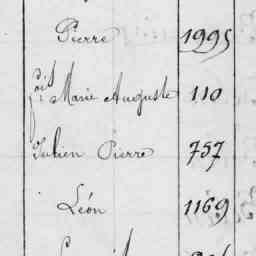 Pierre 1995
Marie Auguste 110
Julien Pierre 757
Léon 1169